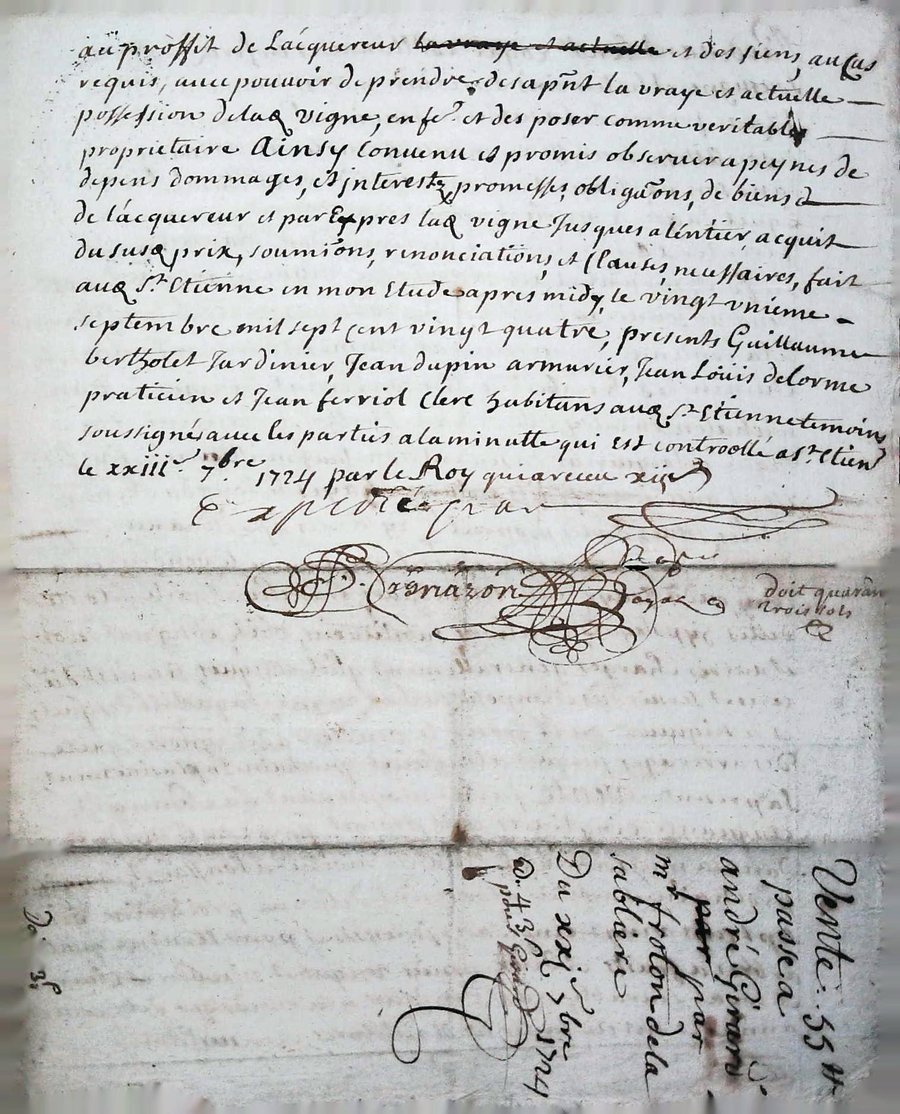 au proffit de Lacquereur la vraye et actuelle et des siens, au Cas
requis, avec pouvoir de prendre desapñt la vraye et actuelle
possession delad vigne, en fe. et des poser comme veritable
proprietaire Ainsy Convenu et promis observer a peynes de
depens dommages, et interestz promesses, obligãons, de biens d
de lacquereur et par Expres lad vigne Jusques a lentier, acquit
du susd prix, soumiõns, renonciations, et Clauses, necessaires, fait
aud St. Etienne en mon Etude apres midy, le vingt unieme
septembre mil sept Cent vingt quatre, presents Guillaume
bertholet Jardinier, Jean dupin armurier, Jean Loüis delorme
praticien et Jean ferriol Clerc habitans aud St. Etienne temoins
soussignés avec les parties a la minutte qui est controollé a St. Etien
le xxiiie. 7bre. 1724 par le Roy qui a receu xijs
doit quaran
trois sols
Vente. 55 tt
passe a
andré Girard
par par
mr. frolon de la
sabliere
Du xxje 7bre 1724
d. 43s
pour Girard